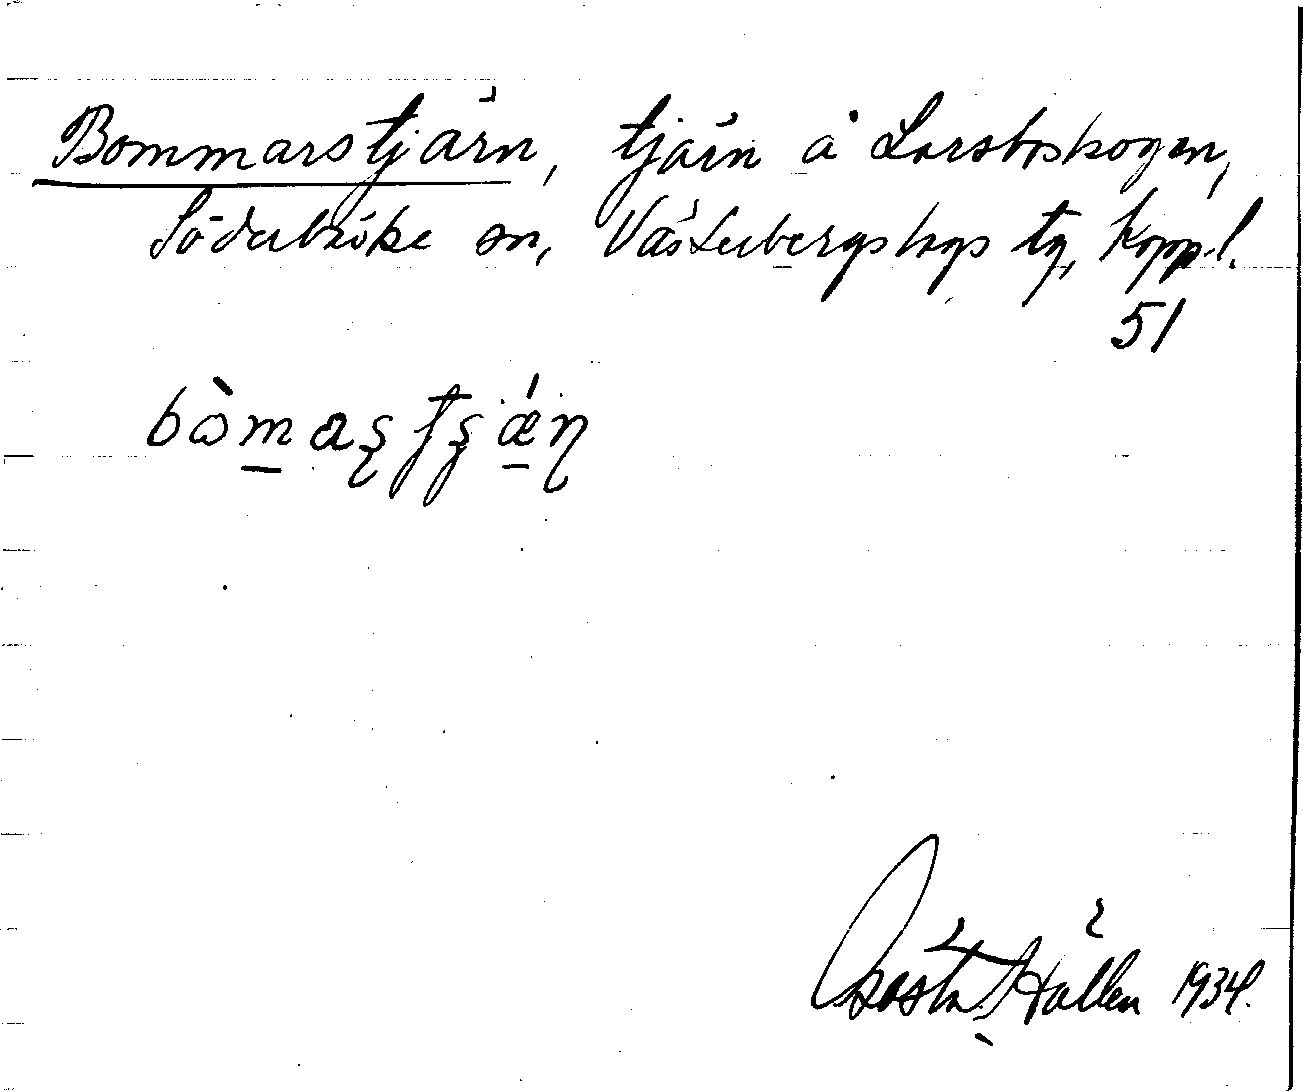 Bommarstjärn, tjärn å Larsboskogen,
Söderbärke sn, Västerbergslags tg, Kopp.l.
51
bɷ̀maʂʈʂǽɳ
Gösta Hållen 1934.